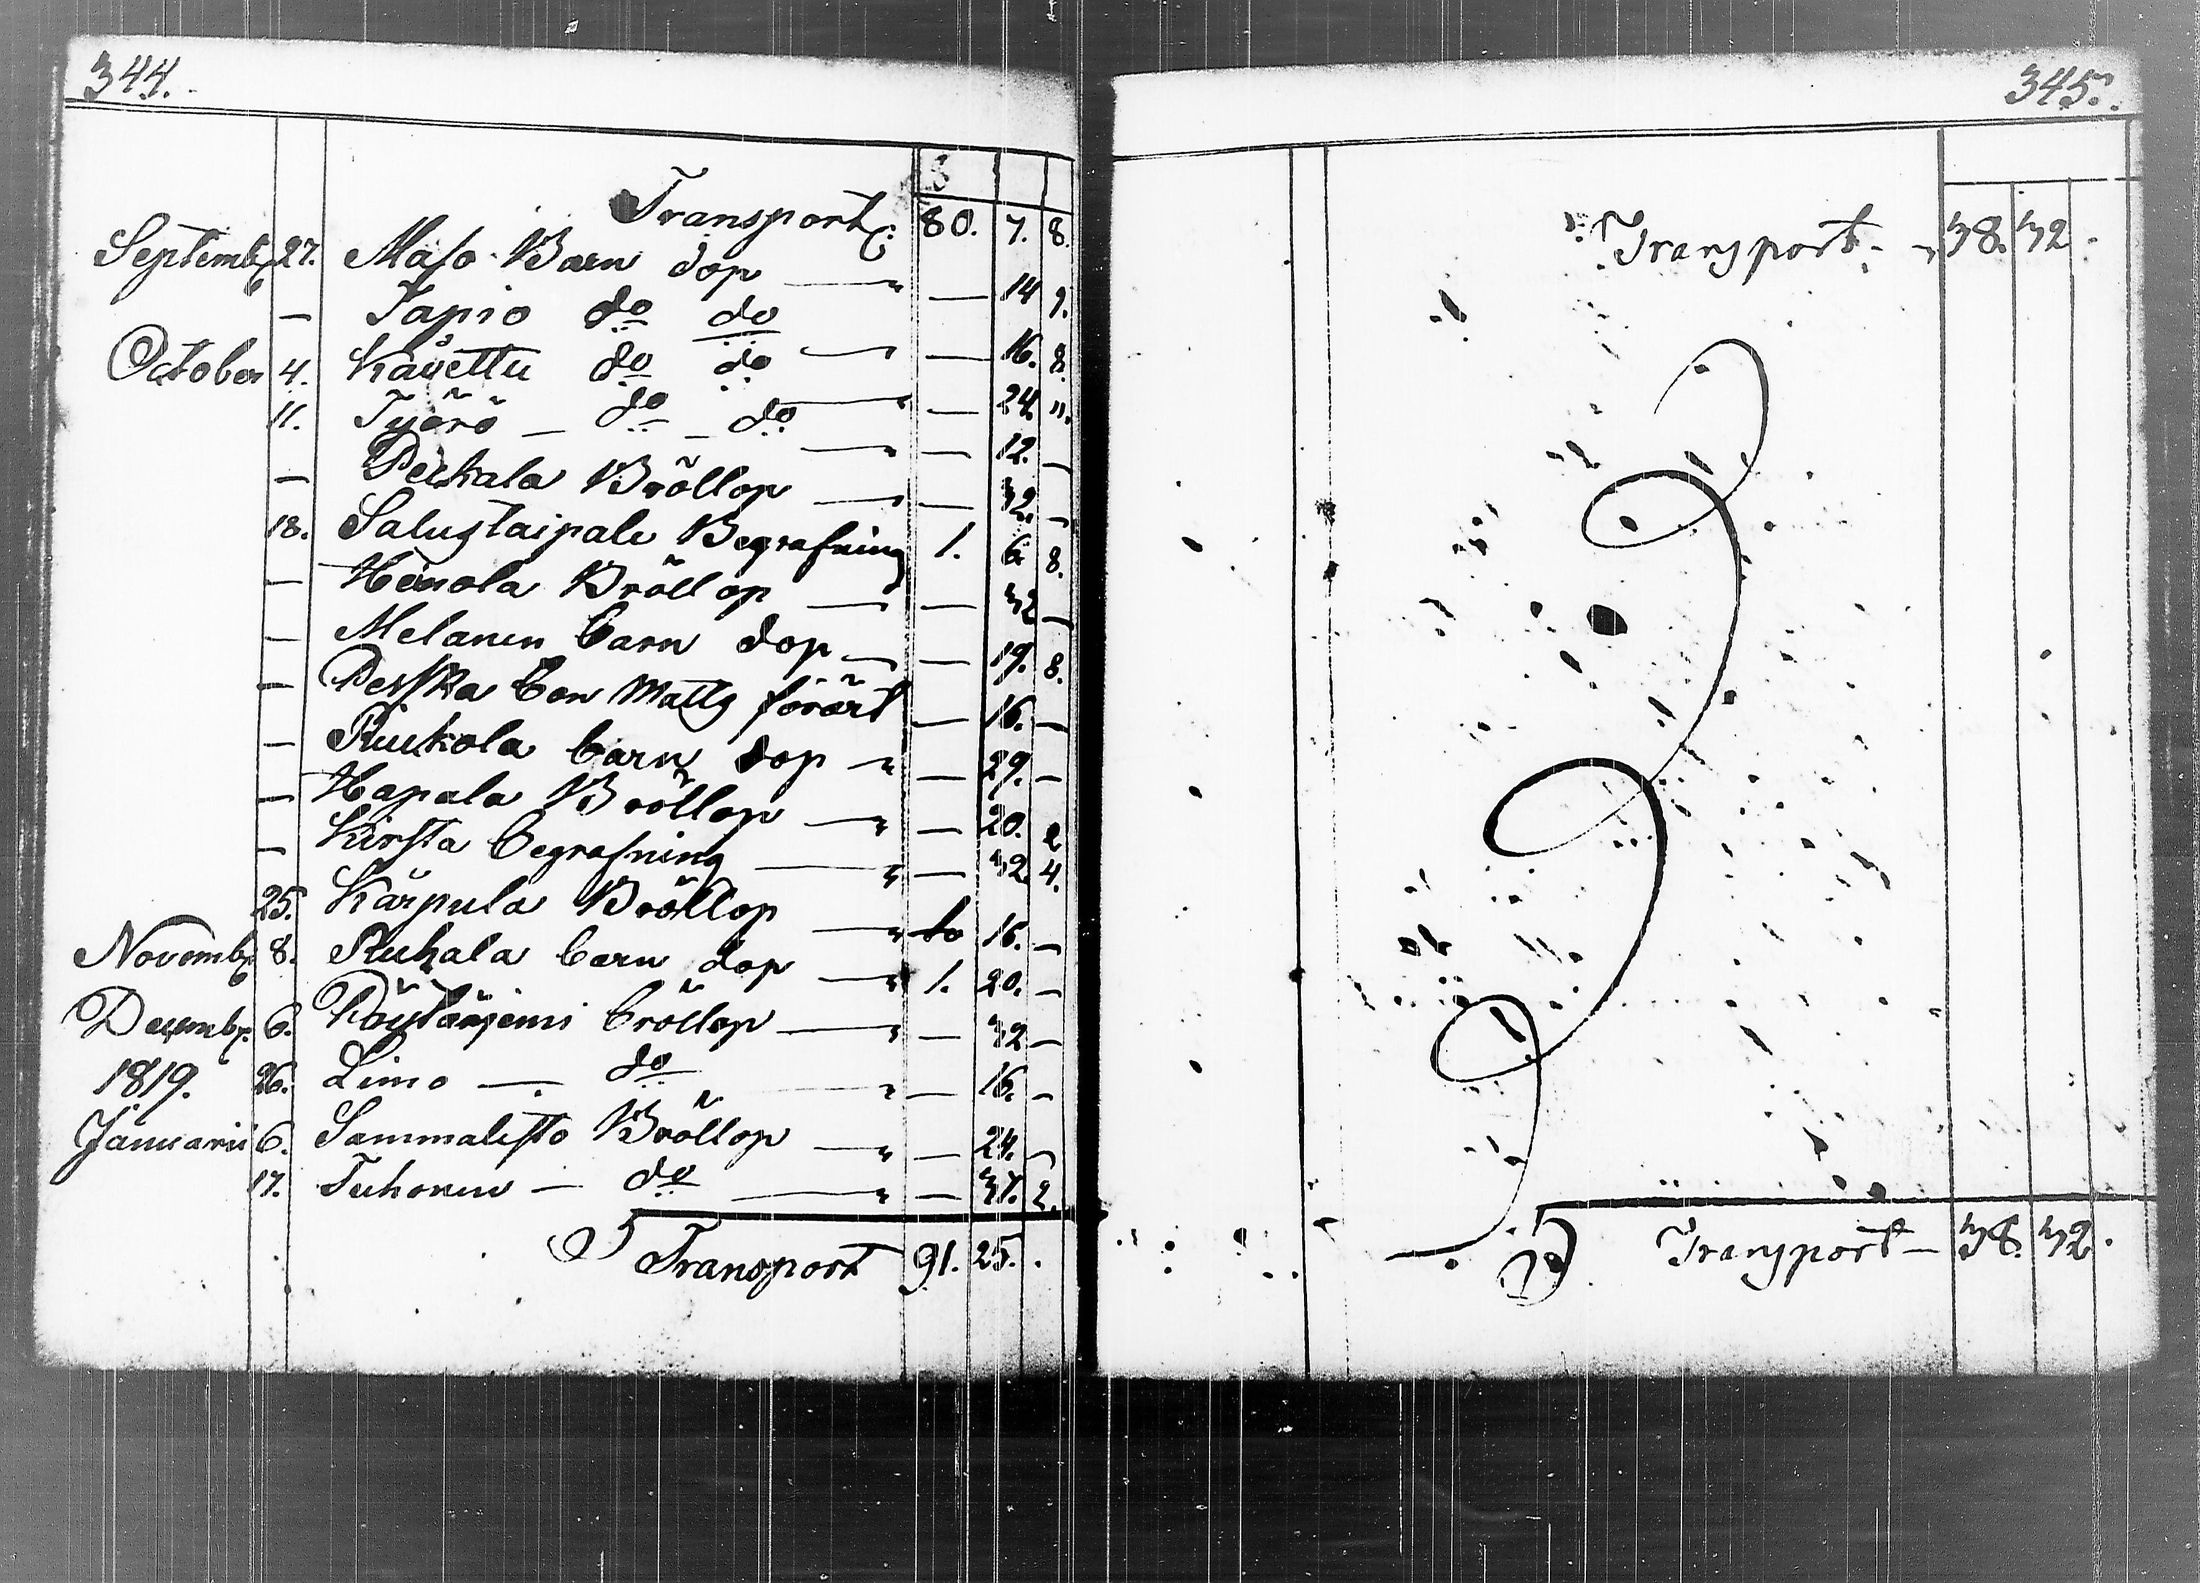 344.
Transport 80. 7. 8.
Septembr 27. Maso Barn dop — 14 9.
— Tapio do do — 16. 8.
October 4. Kåuettu do do — 24. 11.
11. Työrö — do — do — 12. —
— Peckala Bröllop — 32. —
18. Salustaipale Begrafning 1. 6 8.
— Heinola Bröllop — 32 —
— Melanen barn dop — — 19. 8.
— Matts förärt — 16. —
— Riukola barn dop — 29. —
— Hapala Bröllop — 20. 2
— Kirsta begrafning — 32. 4.
25. Kärpula Bröllop — 16. —
Novembr 8. Ruhala barn dop — 1. 20. —
Decembr. 6. bröllop — — 32 —
1819. 26. Limo — do — 16. —
Januarii 6. Sammalisto Bröllop — — 24. —
17. Tuhonen — do — — 37. 2.
Transport 91. 25. .
345.
Transport — 38. 32.
Transport — 38. 32.